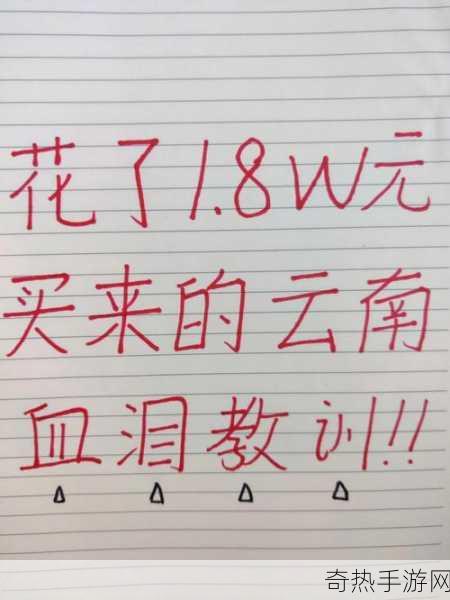 花了1.8W元
买来的云南
血泪教训!!
奇热手游网